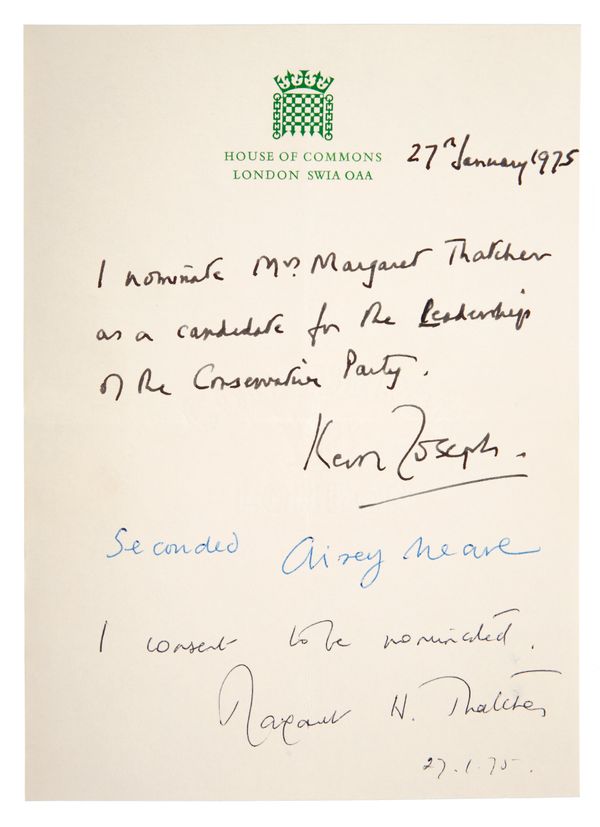 HOUSE OF COMMONS
LONDON SW1A 0AA
27th January 1975
I nominate Mrs Margaret Thatcher
as a candidate for the Leadership
of the Conservative Party.
Keith Joseph.
Seconded Airey Neave
I consent to be nominated.
Margaret H. Thatcher
27.1.75.